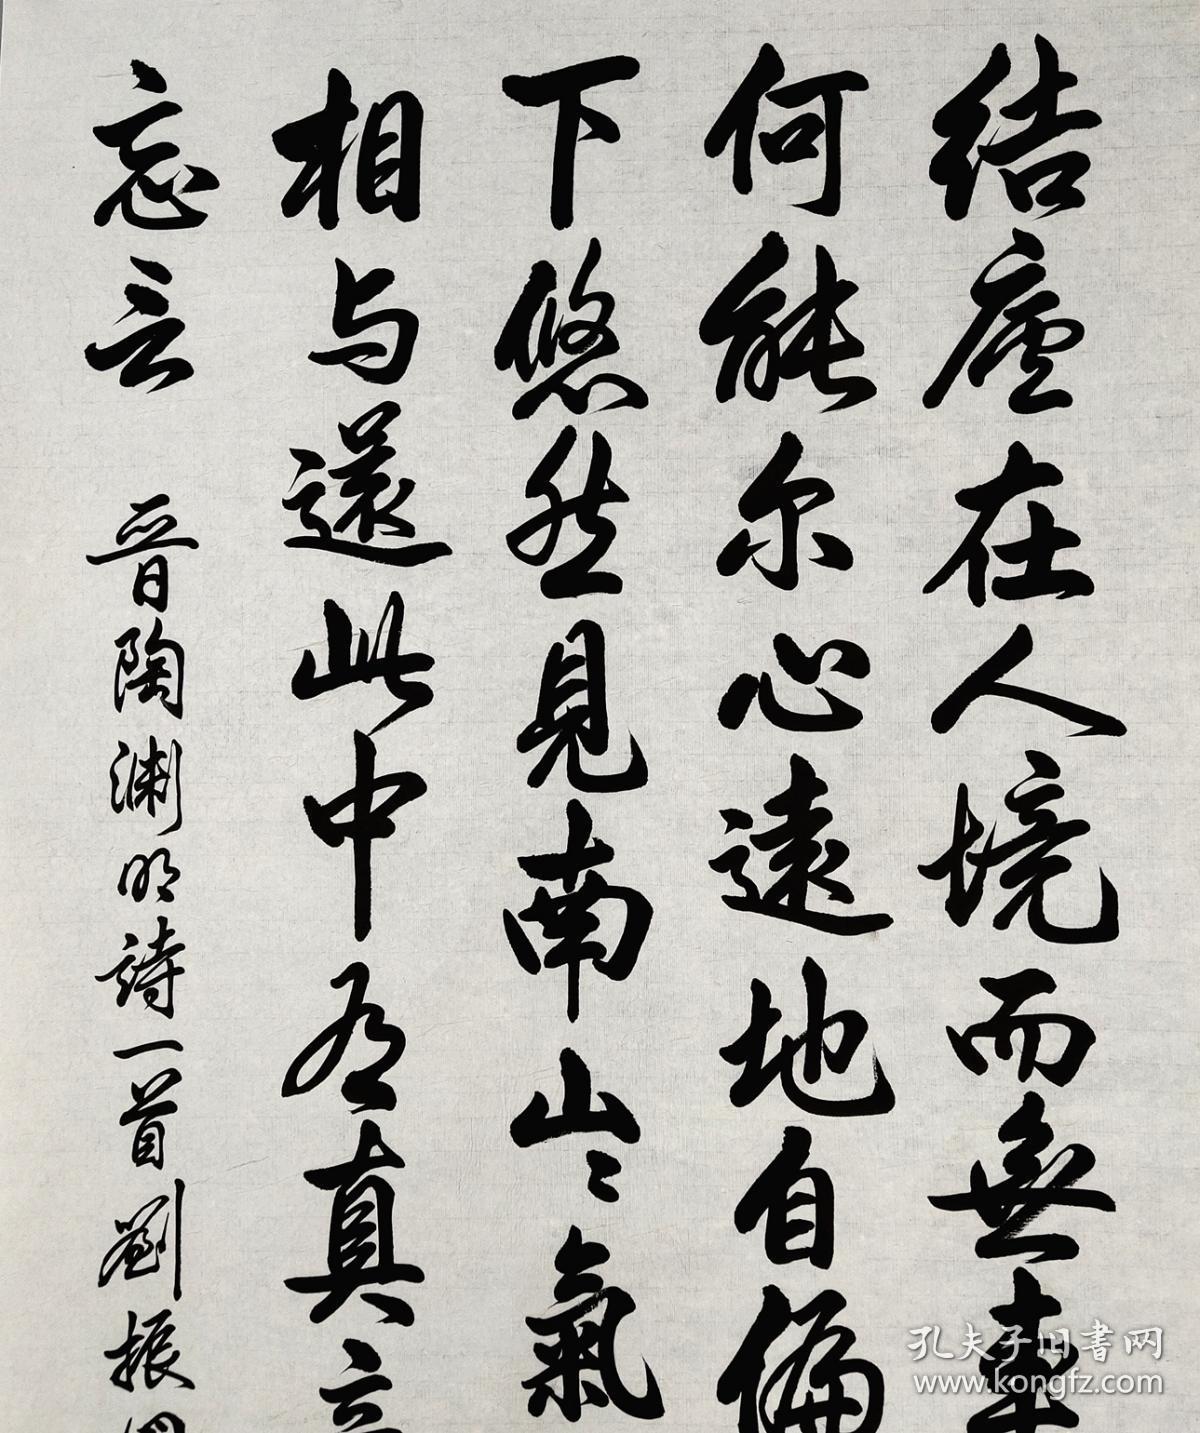 结廬在人境而無車
何能尔心遠地自偏
下悠然見南山〻氣
相与還此中有真意
忘言 晋陶渊明詩一首劉振
孔夫子旧书网
www.kongfz.com